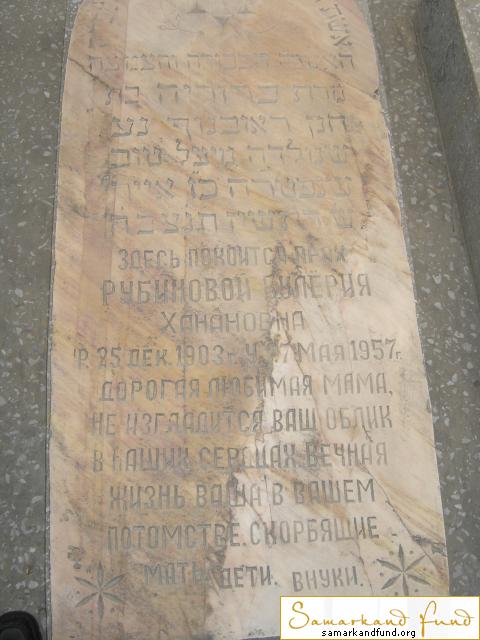 האשה הבכורה והצנועה
מרת ברוריה בת
חנן ראובנוף נע
שנולדה
ונפטרה כז אייר
תנצבה
ЗДЕСЬ ПОКОИТСЯ ПРАХ
РУБИНОВОЙ ВАЛЕРИЯ
ХАНАНОВНА
Р. 25 ДЕК. 1903 г. У. 27 МАЯ 1957 г.
ДОРОГАЯ ЛЮБИМАЯ МАМА,
НЕ ИЗГЛАДИТСЯ ВАШ ОБЛИК
В НАШИХ СЕРДЦАХ. ВЕЧНАЯ
ЖИЗНЬ ВАША В ВАШЕМ
ПОТОМСТВЕ. СКОРБЯЩИЕ
МАТЬ, ДЕТИ. ВНУКИ.
Samarkand Fund
samarkandfund.org